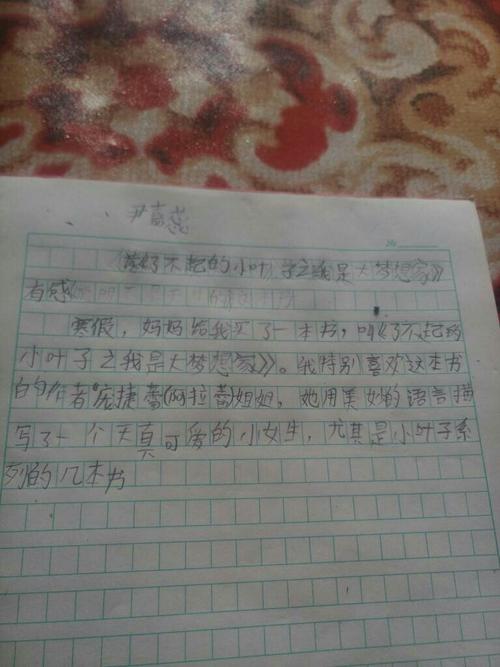 尹嘉蕊
No
《读好不起的小叶子之我是大梦想家》
有感
寒假，妈妈给我买了一本书，叫《了不起的
小叶子之我是大梦想家》。我特别喜欢这本书
的作者庞捷蕾(阿拉蕾)姐姐，她用美妙的语言描
写了一个天真可爱的小女生，尤其是小叶子系
列的几本书